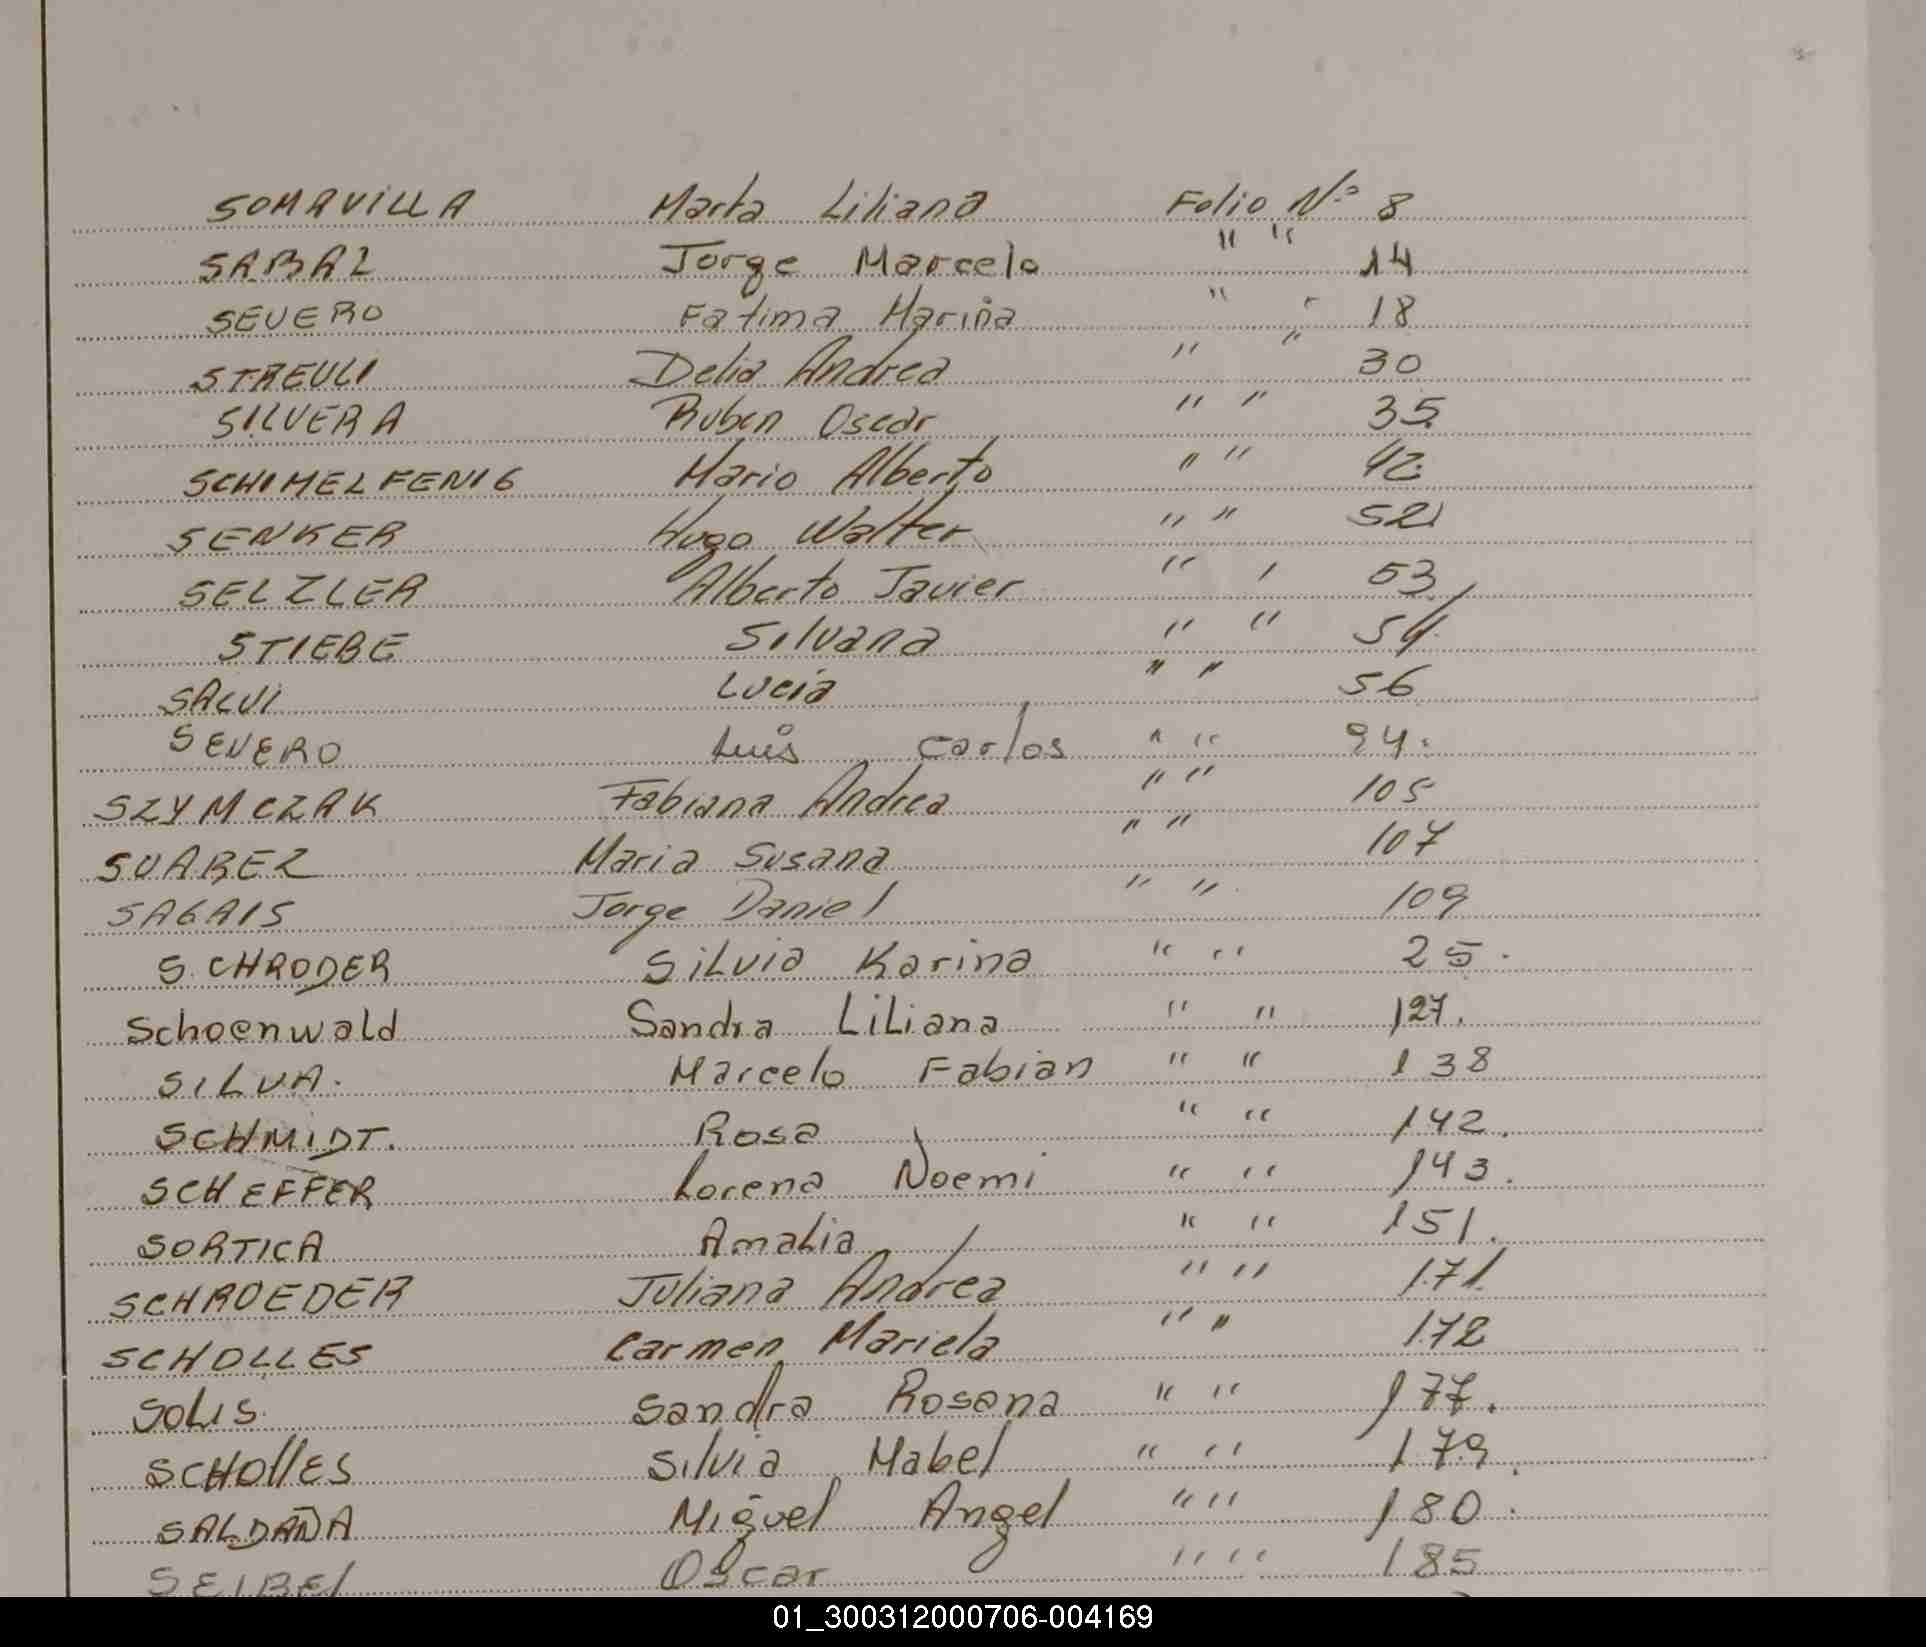 SOMAVILLA Marta Liliana Folio Nº 8
SABAL Jorge Marcelo " " 14
SEVERO Fatima Marina " " 18
STREULI Delia Andrea " " 30
SILVERA Ruben Oscar " " 35
SCHIMELFENIG Mario Alberto " " 42
SENKER Hugo Walter " " 52
SELZLER Alberto Javier " " 53
STIEBE Silvana " " 54
SALVI Lucia " " 56
SEVERO Luis Carlos " " 94
SZYMCZAK Fabiana Andrea " " 105
SUAREZ Maria Susana " " 107
SAGAIS Jorge Daniel " " 109
SCHRODER Silvia Karina " " 25.
Schoenwald Sandra Liliana " " 127.
SILVA. Marcelo Fabian " " 138
SCHMIDT. Rosa " " 142.
SCHEFFER Lorena Noemi " " 143.
SORTICA Amalia " " 151.
SCHROEDER Juliana Andrea " " 171
SCHOLLES Carmen Mariela " " 172
SOLIS. Sandra Rosana " " 177.
SCHOllES Silvia Mabel " " 179.
SALDAÑA Miguel Angel " " 180.
SEIBEl Oscar " " 185
01_300312000706-004169